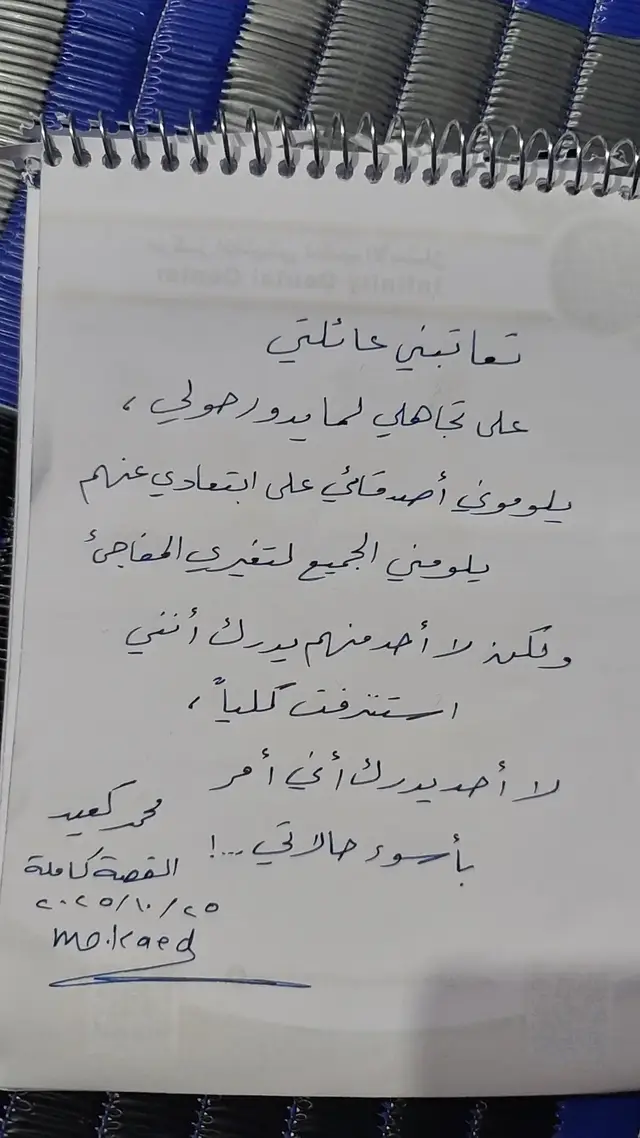 تعاتبني عائلتي
على تجاهلي لما يدور حولي ،
يلوموني أصدقائي على ابتعادي عنهم
يلومني الجميع لتغيري المفاجئ
ولكن لا أحد منهم يدرك أنني
استنزفت كلياً ،
لا أحد يدرك أني أمر
بأسوء حالاتي ...!
محمد كعيد
القصة كاملة
٢٠٢٥/١٠/٢٥
mo.kaed